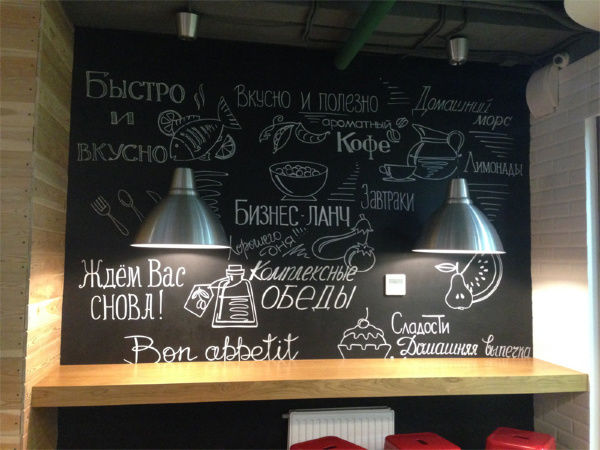 Быстро
и
вкусно
Вкусно и полезно
ароматный
Кофе
Домашний
морс
Лимонады
Завтраки
Бизнес-ланч
Хорошего
дня!!!
Ждём Вас
снова!
Комплексные
обеды
Bon appetit
Сладости
Домашняя выпечка